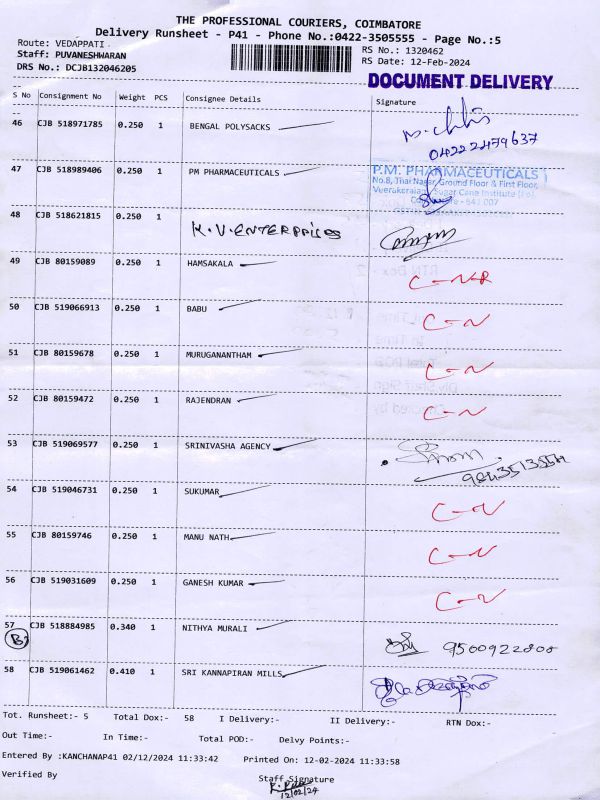 THE PROFESSIONAL COURIERS, COIMBATORE
Delivery Runsheet - P41 - Phone No.:0422-3505555 - Page No.:5
Route: VEDAPPATI
Staff: PUVANESHWARAN
DRS No.: DCJB132046205
RS No.: 1320462
RS Date: 12-Feb-2024
DOCUMENT DELIVERY
S No Consignment No Weight PCS Consignee Details Signature
46 CJB 518971785 0.250 1 BENGAL POLYSACKS
04222479637
47 CJB 518989406 0.250 1 PM PHARMACEUTICALS
P.M. PHARMACEUTICALS
No.8, Thai Nagar, Ground Floor & First Floor,
Veerakeralam, Sugar Cane Institute (Po),
Coimbatore - 641 007
48 CJB 518621815 0.250 1 K.V.ENTERPRISES
49 CJB 80159089 0.250 1 HAMSAKALA C-NR
50 CJB 519066913 0.250 1 BABU C-N
51 CJB 80159678 0.250 1 MURUGANANTHAM C-N
52 CJB 80159472 0.250 1 RAJENDRAN C-N
53 CJB 519069577 0.250 1 SRINIVASHA AGENCY
54 CJB 519046731 0.250 1 SUKUMAR C-N
55 CJB 80159746 0.250 1 MANU NATH C-N
56 CJB 519031609 0.250 1 GANESH KUMAR C-N
57 CJB 518884985 0.340 1 NITHYA MURALI 9500922808
B
58 CJB 519061462 0.410 1 SRI KANNAPIRAN MILLS
Tot. Runsheet:- 5 Total Dox:- 58 I Delivery:- II Delivery:- RTN Dox:-
Out Time:- In Time:- Total POD:- Delvy Points:-
Entered By :KANCHANAP41 02/12/2024 11:33:42 Printed On: 12-02-2024 11:33:58
Verified By Staff Signature
12/02/24